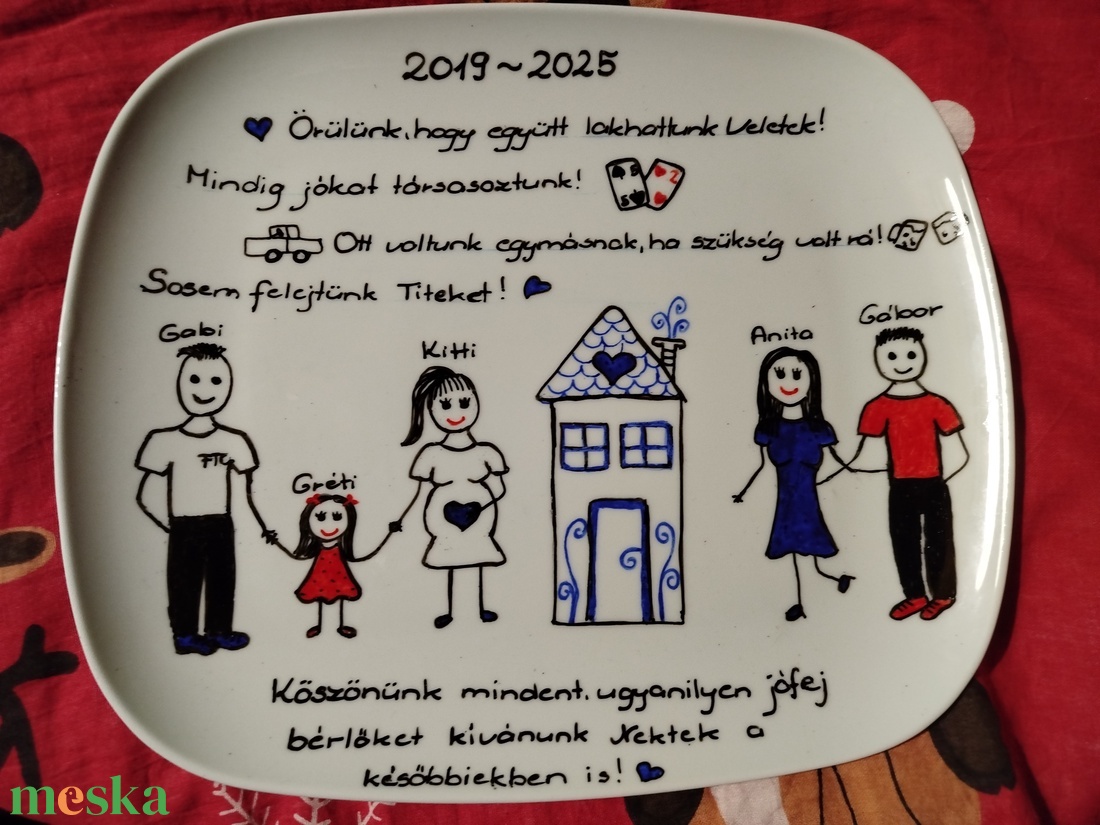 2019~2025
Örülünk, hogy együtt lakhattunk Veletek!
Mindig jókat társasoztunk!
5 2
5
Ott voltunk egymásnak, ha szükség volt rá!
Sosem felejtünk Titeket!
Gabi
Kitti
Anita
Gábor
FTC
Gréti
Köszönünk mindent, ugyanilyen jófej
bérlőket kívánunk Nektek a
későbbiekben is!
meska